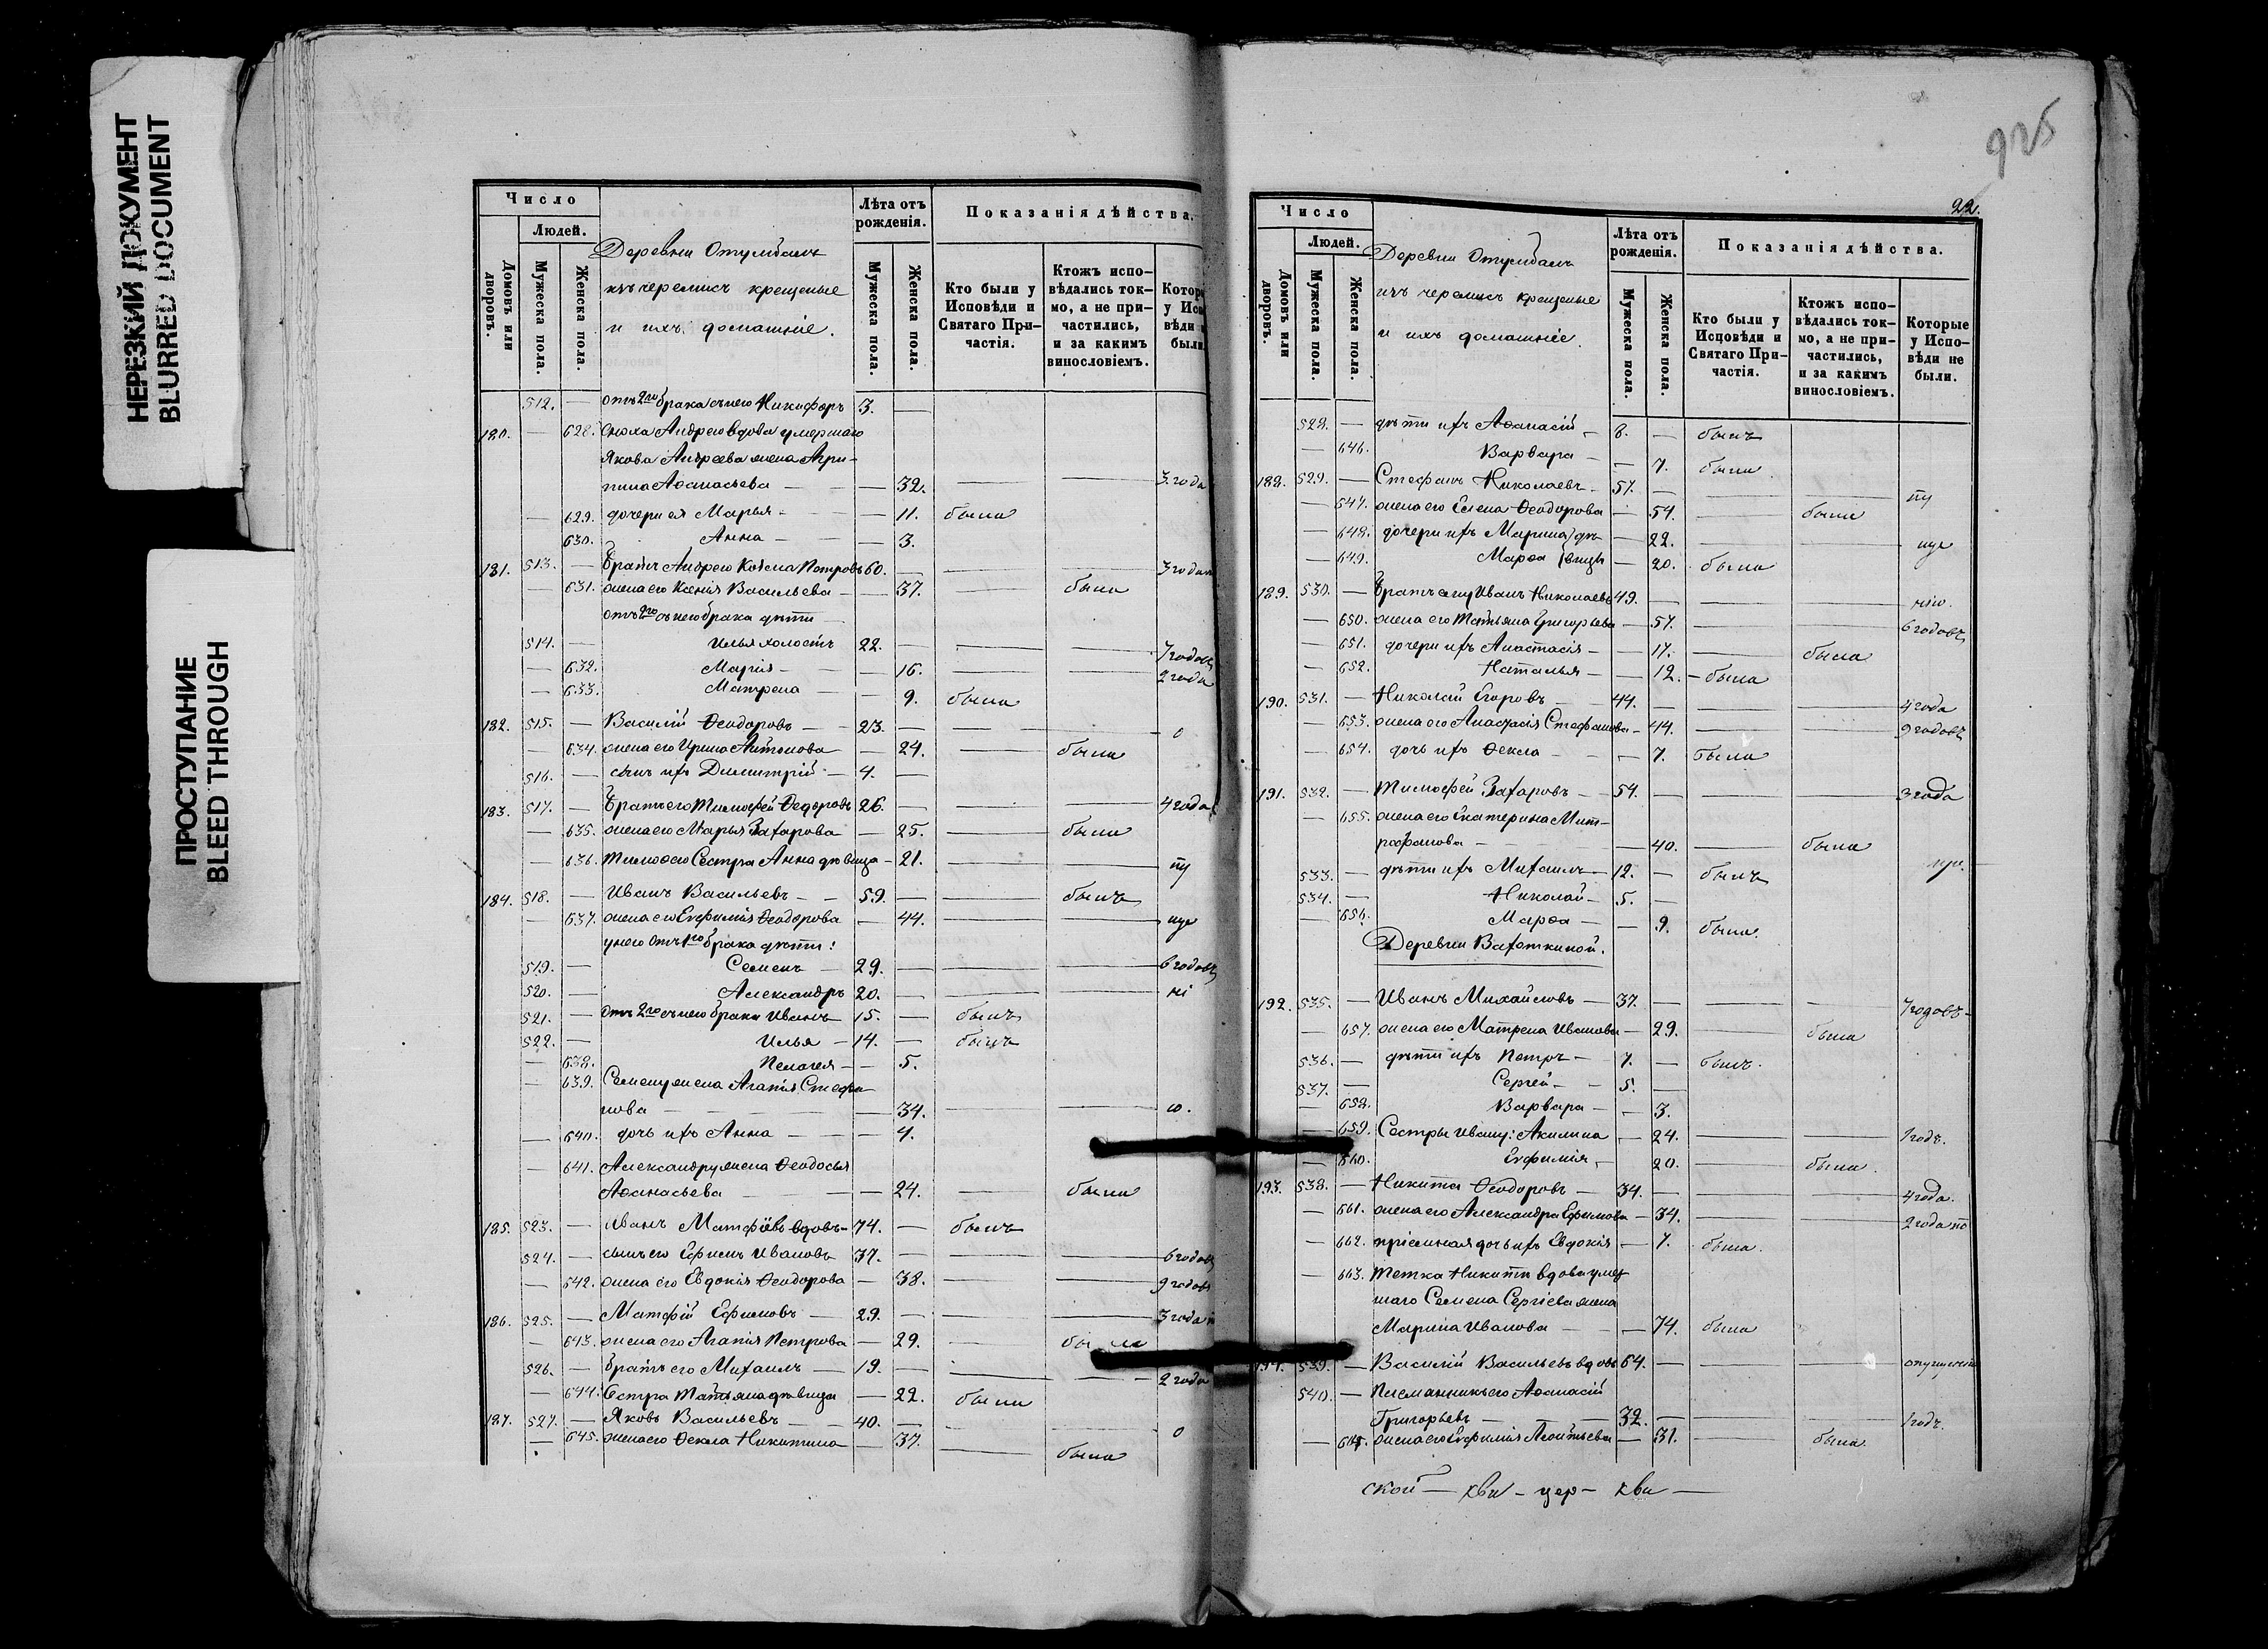 НЕРЕЗКИЙ ДОКУМЕНТ
BLURRED DOCUMENT
ПРОСТУПАНИЕ
BLEED THROUGH
Число
Людей.
Домовъ или дворовъ.
Мужеска пола.
Женска пола.
Деревни Отумбалъ
изъ черемисъ крещеные
и ихъ домашніе.
Лѣта отъ рожденія.
Мужеска пола.
Женска пола.
Показанія дѣйства.
Кто были у Исповѣди и Святаго Причастія.
Ктожъ исповѣдались токмо, а не причастились, и за какимъ винословіемъ.
512. — отъ 2го брака съ нею Никифоръ 3. —
180. — 628. Сноха Андрею вдова умершаго
Якова Андреева жена Агри-
пина Аѳанасьева — 32. — — 3 года
— 629. дочери ея Марья — — 11. была
630. Анна — — 3.
181. 513. — Братъ Андрею Козма Петровъ 60. — — —
— 631. жена его Ксенія Васильева — 37. — была
отъ 2го съ нею брака дѣти
514. — Илья холостъ 22. — — — 7 годовъ
— 632. Марія — — 16. — — 2 года
— 633. Матрена — — 9. была
182. 515. — Василій Ѳеодоровъ — 23. — — —
— 634. жена его Ирина Антонова — 24. — была
516. — сынъ ихъ Димитрій — 4. —
183. 517. — Братъ его Тимофей Ѳедоровъ 26. — — — 4 года
— 635. жена его Марья Захарова — 25. — была
— 636. Тимоѳею Сестра Анна дѣвица — 21. — — пу
184. 518. — Иванъ Васильевъ — 59. — — былъ
— 637. жена его Евфимія Ѳеодорова — 44. — —
у него отъ 1го брака дѣти:
519. — Семенъ — 29. — — — 6 годовъ
520. — Александръ 20. — — —
521. — отъ 2го съ нею брака Иванъ — 15. — былъ
522. — Илья — 14. — былъ
— 638. Пелагея — — 5.
— 639. Семену жена Агапія Стефа-
нова — — 34. — —
— 640. дочь ихъ Анна — — 4.
— 641. Александру жена Ѳеодосья
Аѳанасьева — — 24. — была
185. 523. — Иванъ Матфіевъ вдовъ — 74. — былъ
524. — сынъ его Ефимъ Ивановъ 37. — — — 6 годовъ
— 642. жена его Евдокія Ѳеодорова — 38. — — 9 годовъ
186. 525. — Матфій Ефимовъ — 29. — — — 3 года
— 643. жена его Агапія Петрова — 29. — была
526. — братъ его Михаилъ — 19. — — — 2 года
— 644. Сестра Татьяна дѣвица — 22. была
187. 527. — Яковъ Васильевъ — 40. — — —
— 645. жена его Ѳекла Никитина — 37. — была
925
22.
Число
Людей.
Домовъ или дворовъ.
Мужеска пола.
Женска пола.
Деревни Отумбалъ
изъ черемисъ крещеные
и ихъ домашніе.
Лѣта отъ рожденія.
Мужеска пола.
Женска пола.
Показанія дѣйства.
Кто были у Исповѣди и Святаго Причастія.
Ктожъ исповѣдались токмо, а не причастились, и за какимъ винословіемъ.
Которые у Исповѣди не были.
528. — дѣти ихъ Аѳанасій — 8. — былъ
— 646. Варвара — — 7. была
188. 529. — Стефанъ Николаевъ — 57. — — — пу
— 647. жена его Елена Ѳеодорова — 54. — была
— 648. дочери ихъ Марина дѣ- — 22. — —
— 649. Марѳа вицы — 20. была
189. 530. — Братъ ему Иванъ Николаевъ 49. — — —
— 650. жена его Татьяна Григорьева — 57. — — 6 годовъ
— 651. дочери ихъ Анастасія — — 17. — была
— 652. Наталья — — 12. — была
190. 531. — Николай Егоровъ — 44. — — — 4 года
— 653. жена его Анастасія Стефанова — 44. — — 9 годовъ
— 654. дочь ихъ Ѳекла — — 7. была
191. 532. — Тимофей Захаровъ — 54. — — — 3 года
— 655. жена его Екатерина Мит-
рофанова — — 40. — была
533. — дѣти ихъ Михаилъ — 12. — былъ
534. — Николай — 5. —
— 656. Марѳа — — 9. была.
Деревни Вахоткиной.
192. 535. — Иванъ Михайловъ — 37. — — — 7 годовъ —
— 657. жена его Матрена Иванова — 29. — была
536. — дѣти ихъ Петръ — 7. — былъ.
537. — Сергей — 5. —
— 658. Варвара — — 3.
— 659. Сестры Ивану: Акилина — 24. — — 1 годъ.
— 660. Евфимія, 20. — была.
193. 538. — Никита Ѳеодоровъ — 34. — — — 4 года.
— 661. жена его Александра Ефимова — 34. — — 2 года
— 662. пріемная дочь ихъ Евдокія — 7. была.
— 663. Тетка Никиты вдова умер
шаго Семена Сергіева жена
Марина Иванова — — 74. была
194. 539. — Василій Васильевъ вдовъ 64. — — —
540. — Племянникъ его Аѳанасій
Григорьевъ — 32. — — — 1 годъ.
— 664. жена его Евфимія Леонтьева — 31. — была.
ской — кви — цер — кви —